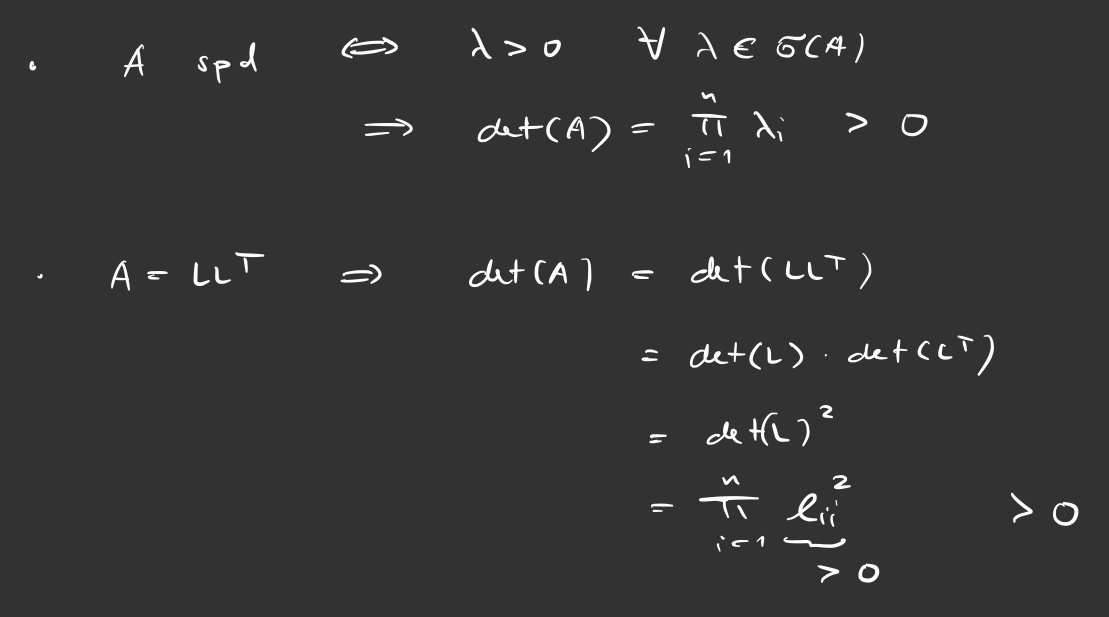 · A spd ⇔ λ > 0 ∀ λ ∈ σ(A)
⇒ det(A) = ∏_{i=1}^{n} λ_i > 0
· A = LL^T ⇒ det(A) = det(LL^T)
= det(L) · det(L^T)
= det(L)^2
= ∏_{i=1}^{n} ℓ_{ii}^2 > 0
> 0